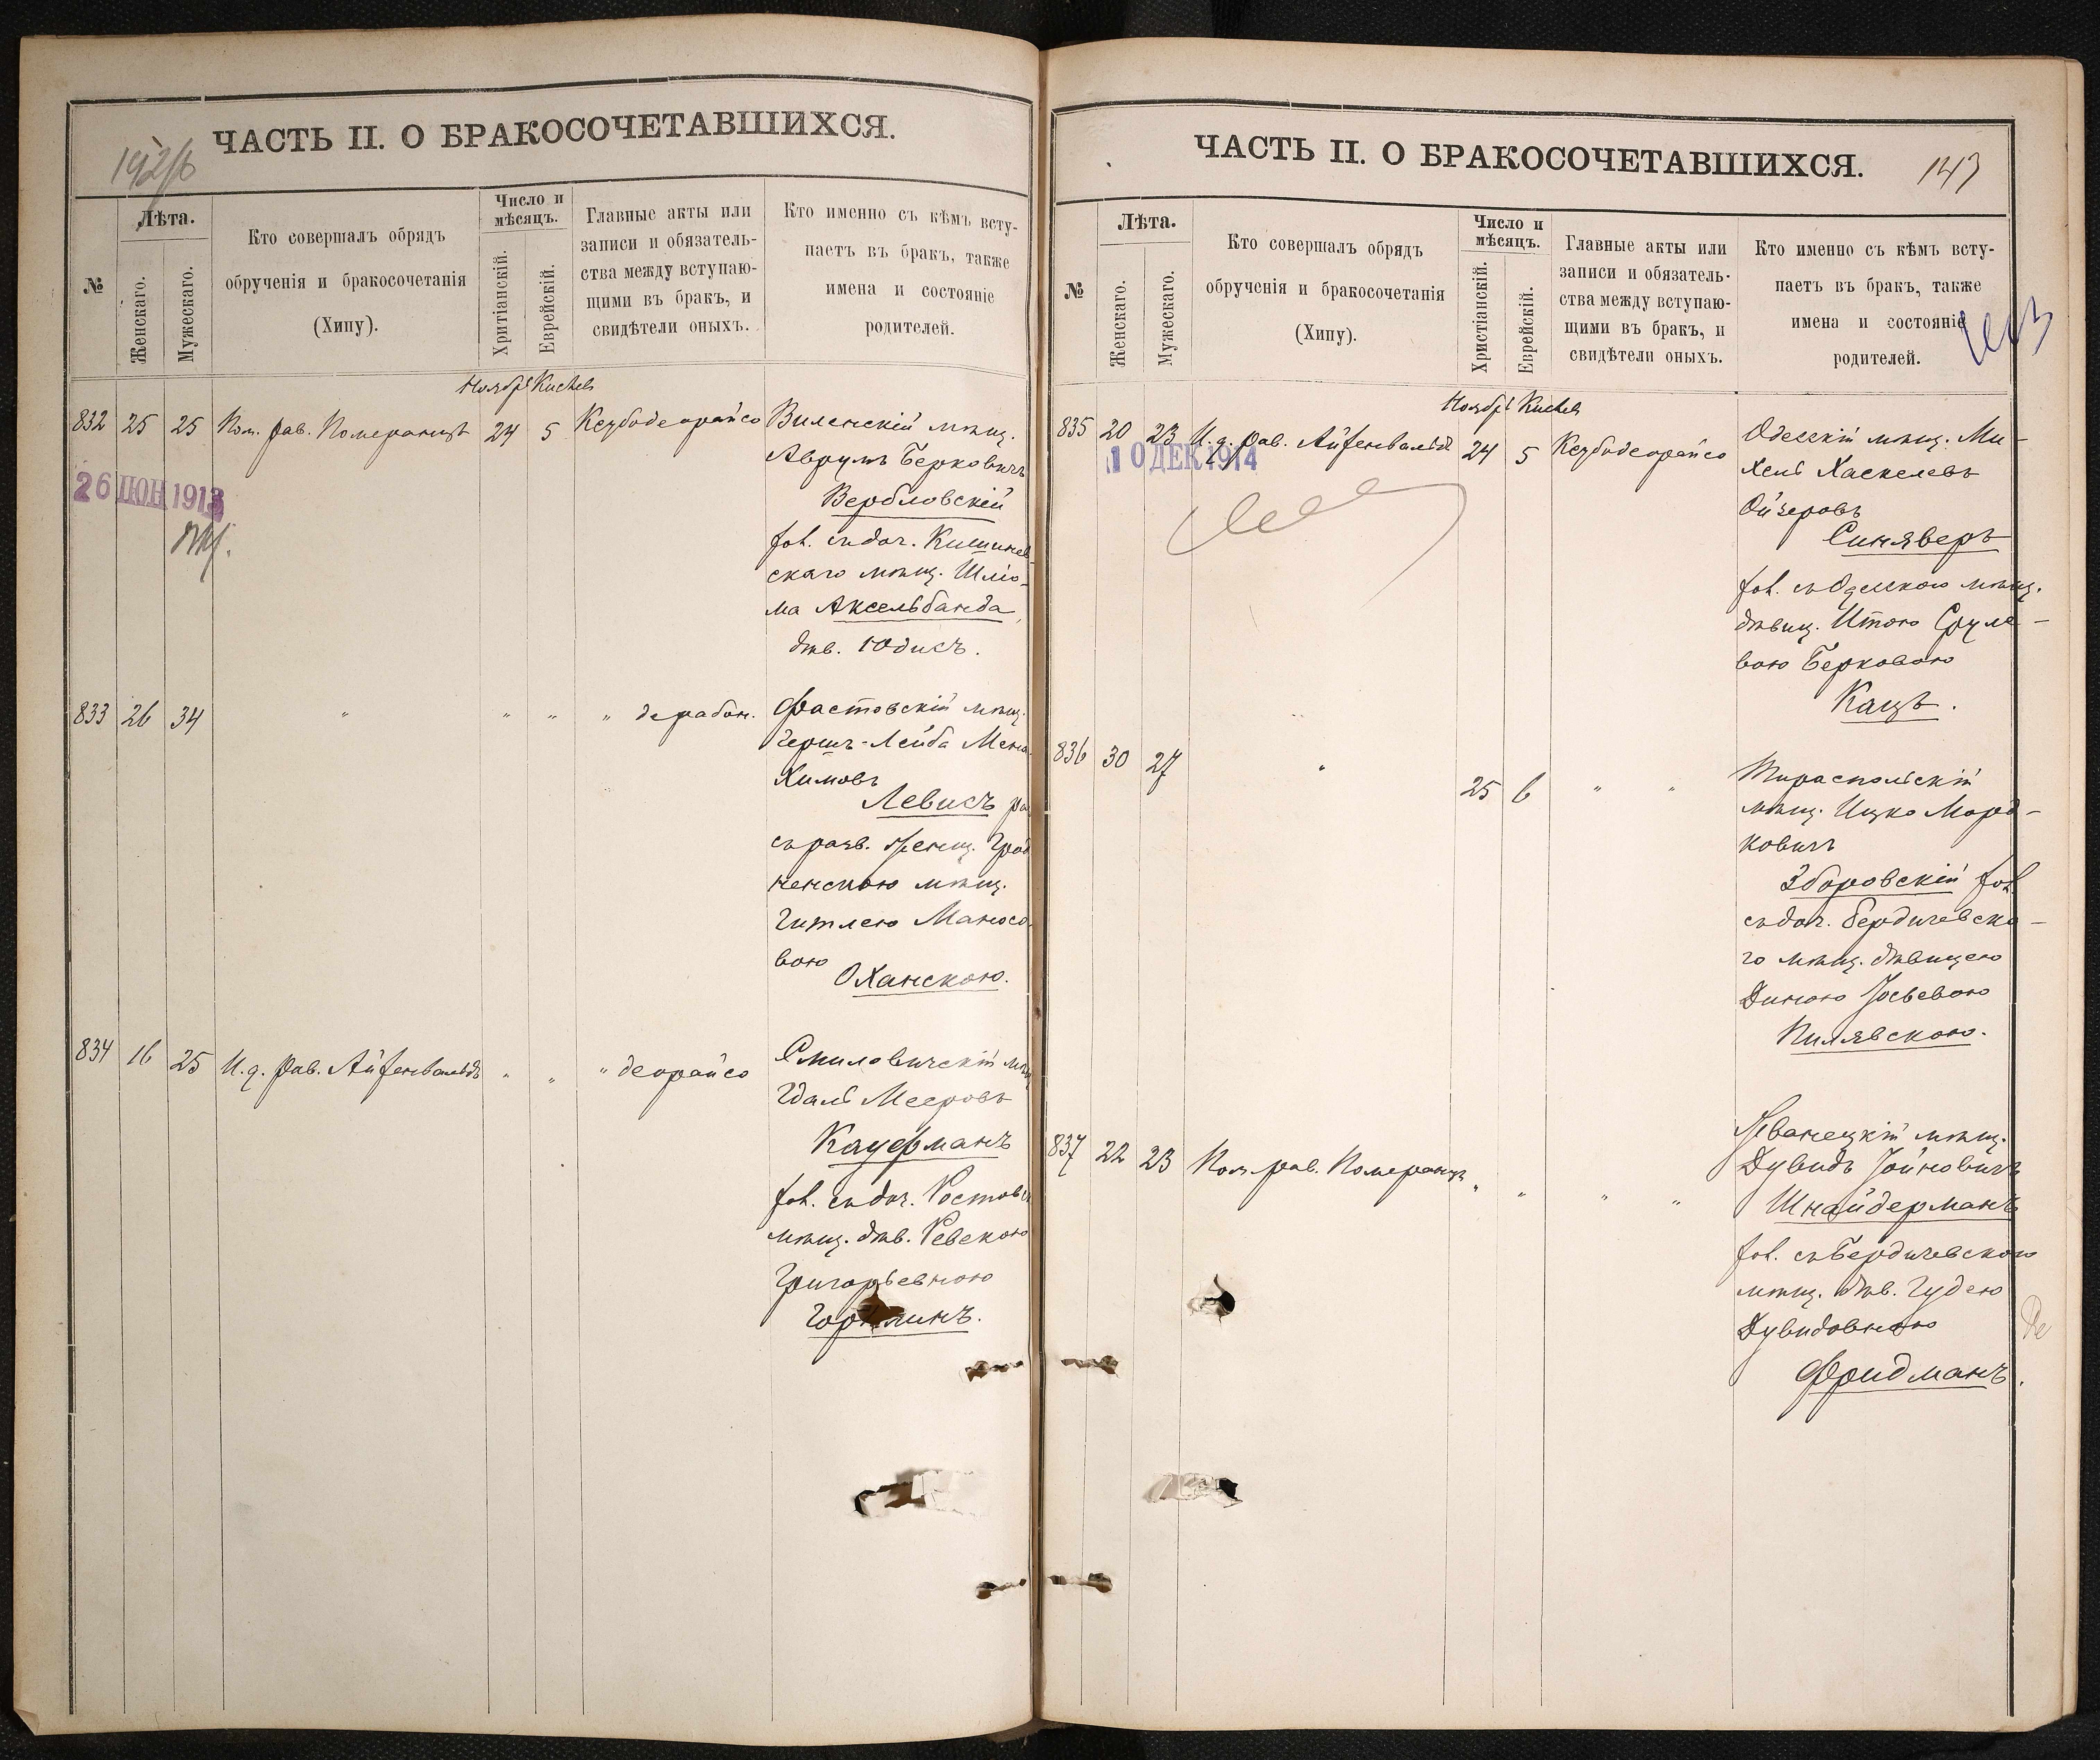 192/б
ЧАСТЬ II. О БРАКОСОЧЕТАВШИХСЯ.
№
Лѣта.
Женскаго.
Мужескаго.
Кто совершалъ обрядъ
обрученія и бракосочетанія
(Хипу).
Число и
мѣсяцъ.
Хритіанскій.
Еврейскій.
Главные акты или
записи и обязатель-
ства между вступаю-
щими въ бракъ, и
свидѣтели оныхъ.
Кто именно съ кѣмъ всту-
паетъ въ бракъ, также
имена и состояніе
родителей.
Ноябрь Кислев
832 25 25 Пом. рав. Померанцъ 24 5 Кезубодеорайсо Виленскій мѣщ.
Аврумъ Берковичъ
Вербловскій
26 ІЮН 1913
хол. съ доч. Кишинев-
скаго мѣщ. Шлío-
ма Аксельбанда
дѣв. Юдисъ.
833 26 34 " " " " дерабон. Фастовскій мѣщ.
Гершъ-Лейба Мена-
химовъ
Левисъ ра
съ разв. женщ. Грод
ненскою мѣщ.
Гитлею Маносо-
вою
Оханскою.
834 16 25 И. д. рав. Айзенвальдъ " " " деорайсо Смиловичскій мѣщ
Гдаль Мееровъ
Кауфманъ
хол. съ доч. Ростов
мѣщ. дѣв. Ревекою
Григорьевною
ЧАСТЬ II. О БРАКОСОЧЕТАВШИХСЯ.
143
№
Лѣта.
Женскаго.
Мужескаго.
Кто совершалъ обрядъ
обрученія и бракосочетанія
(Хипу).
Число и
мѣсяцъ.
Христіанскій.
Еврейскій.
Главные акты или
записи и обязатель-
ства между вступаю-
щими въ бракъ, и
свидѣтели оныхъ.
Кто именно съ кѣмъ всту-
паетъ въ бракъ, также
имена и состояніе
родителей.
Ноябрь Кислев
835 20 23 И. д. рав. Айзенвальдъ 24 5 Кезубодеорайсо Одесскій мѣщ. Ми-
10 ДЕК 1914
хель Хаскелевъ
Ойзеровъ
Синяверъ
хол. съ Одесскою мѣщ.
дѣвиц. Итою Сруле-
вою Берковою
Кацъ.
836 30 27 " 25 6 " " Тираспольскій
мѣщ. Ицко Морд-
ковичъ
Зборовскій хол.
съ доч. Бердичевска-
го мѣщ. дѣвицею
Диною Іосьевою
Пилявскою.
837 22 23 Пом. рав. Померанцъ " " " " Жванецкій мѣщ.
Дувидъ Іойновичъ
Шнайдерманъ
хол. съ Бердичевскою
мѣщ. дѣв. Гудею
Дувидовною
Фридманъ.